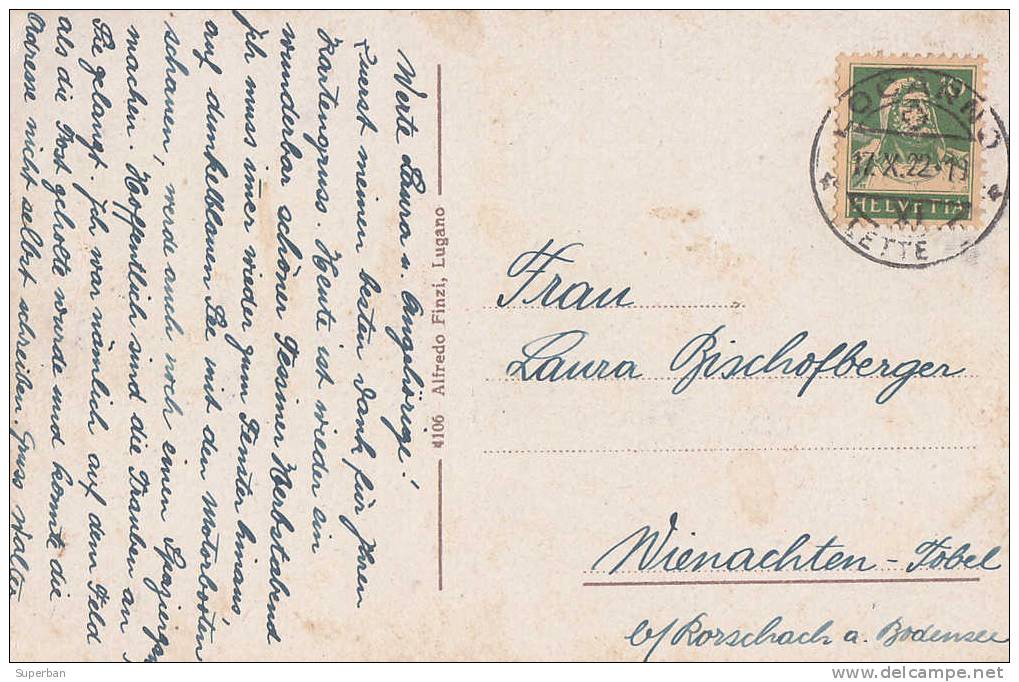 Werte Laura u. Angehörige!
Zuerst meinen besten Dank für Ihren
Kartengruss. Heute ist wieder ein
wunderbar schöner Tessiner Herbstabend
Ich muss imer wieder zum Fenster hinaus
auf dunkelblauen See mit den Motorboten
schauen, werd auch noch einen Spazierg
machen. Hoffentlich sind die Trauben an
Sie gelangt. Ich war nämlich auf dem Feld
als die Post geholte wurde und konnte die
Adresse nicht selbst schreiben. Gruss Walter
4106 Alfredo Finzi, Lugano
10
HELVETIA
LOCARNO
17.X.22-19
XI
LETTE
Frau
Laura Bischofberger
Wienachten-Tobel
b/ Rorschach a. Bodensee
Superban
delcampe.net